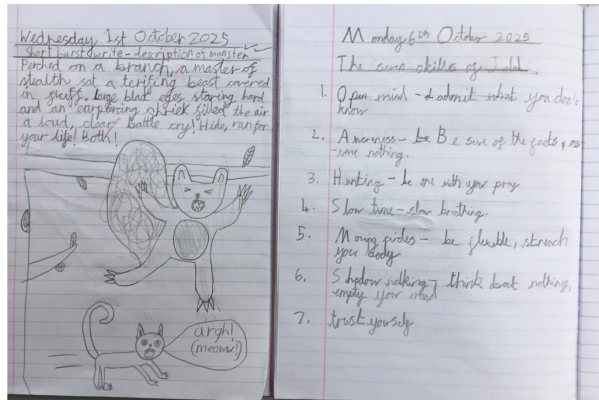 Wednesday 1st October 2025
Short burst write - description of monster
Pached on a branch, a master of
stealth sat a terifing beast covered
in fluff, large black eyes staring hard
and an earpiering shriek filled the air
a loud, clear battle cry! Hide, run for
your life! Both!
argh!
(meoww!)
Monday 6th October 2025
The seven skills of Jalal
1. Open mind - admit what you don't
know
2. Awareness - Be sure of the facts, ass-
ume nothing.
3. Hunting - be one with your prey
4. Slow time - slow breathing
5. Moving circles - be flexible, strech
your body
6. Shadow walking - think about nothing,
empty your mind
7. trust yourself